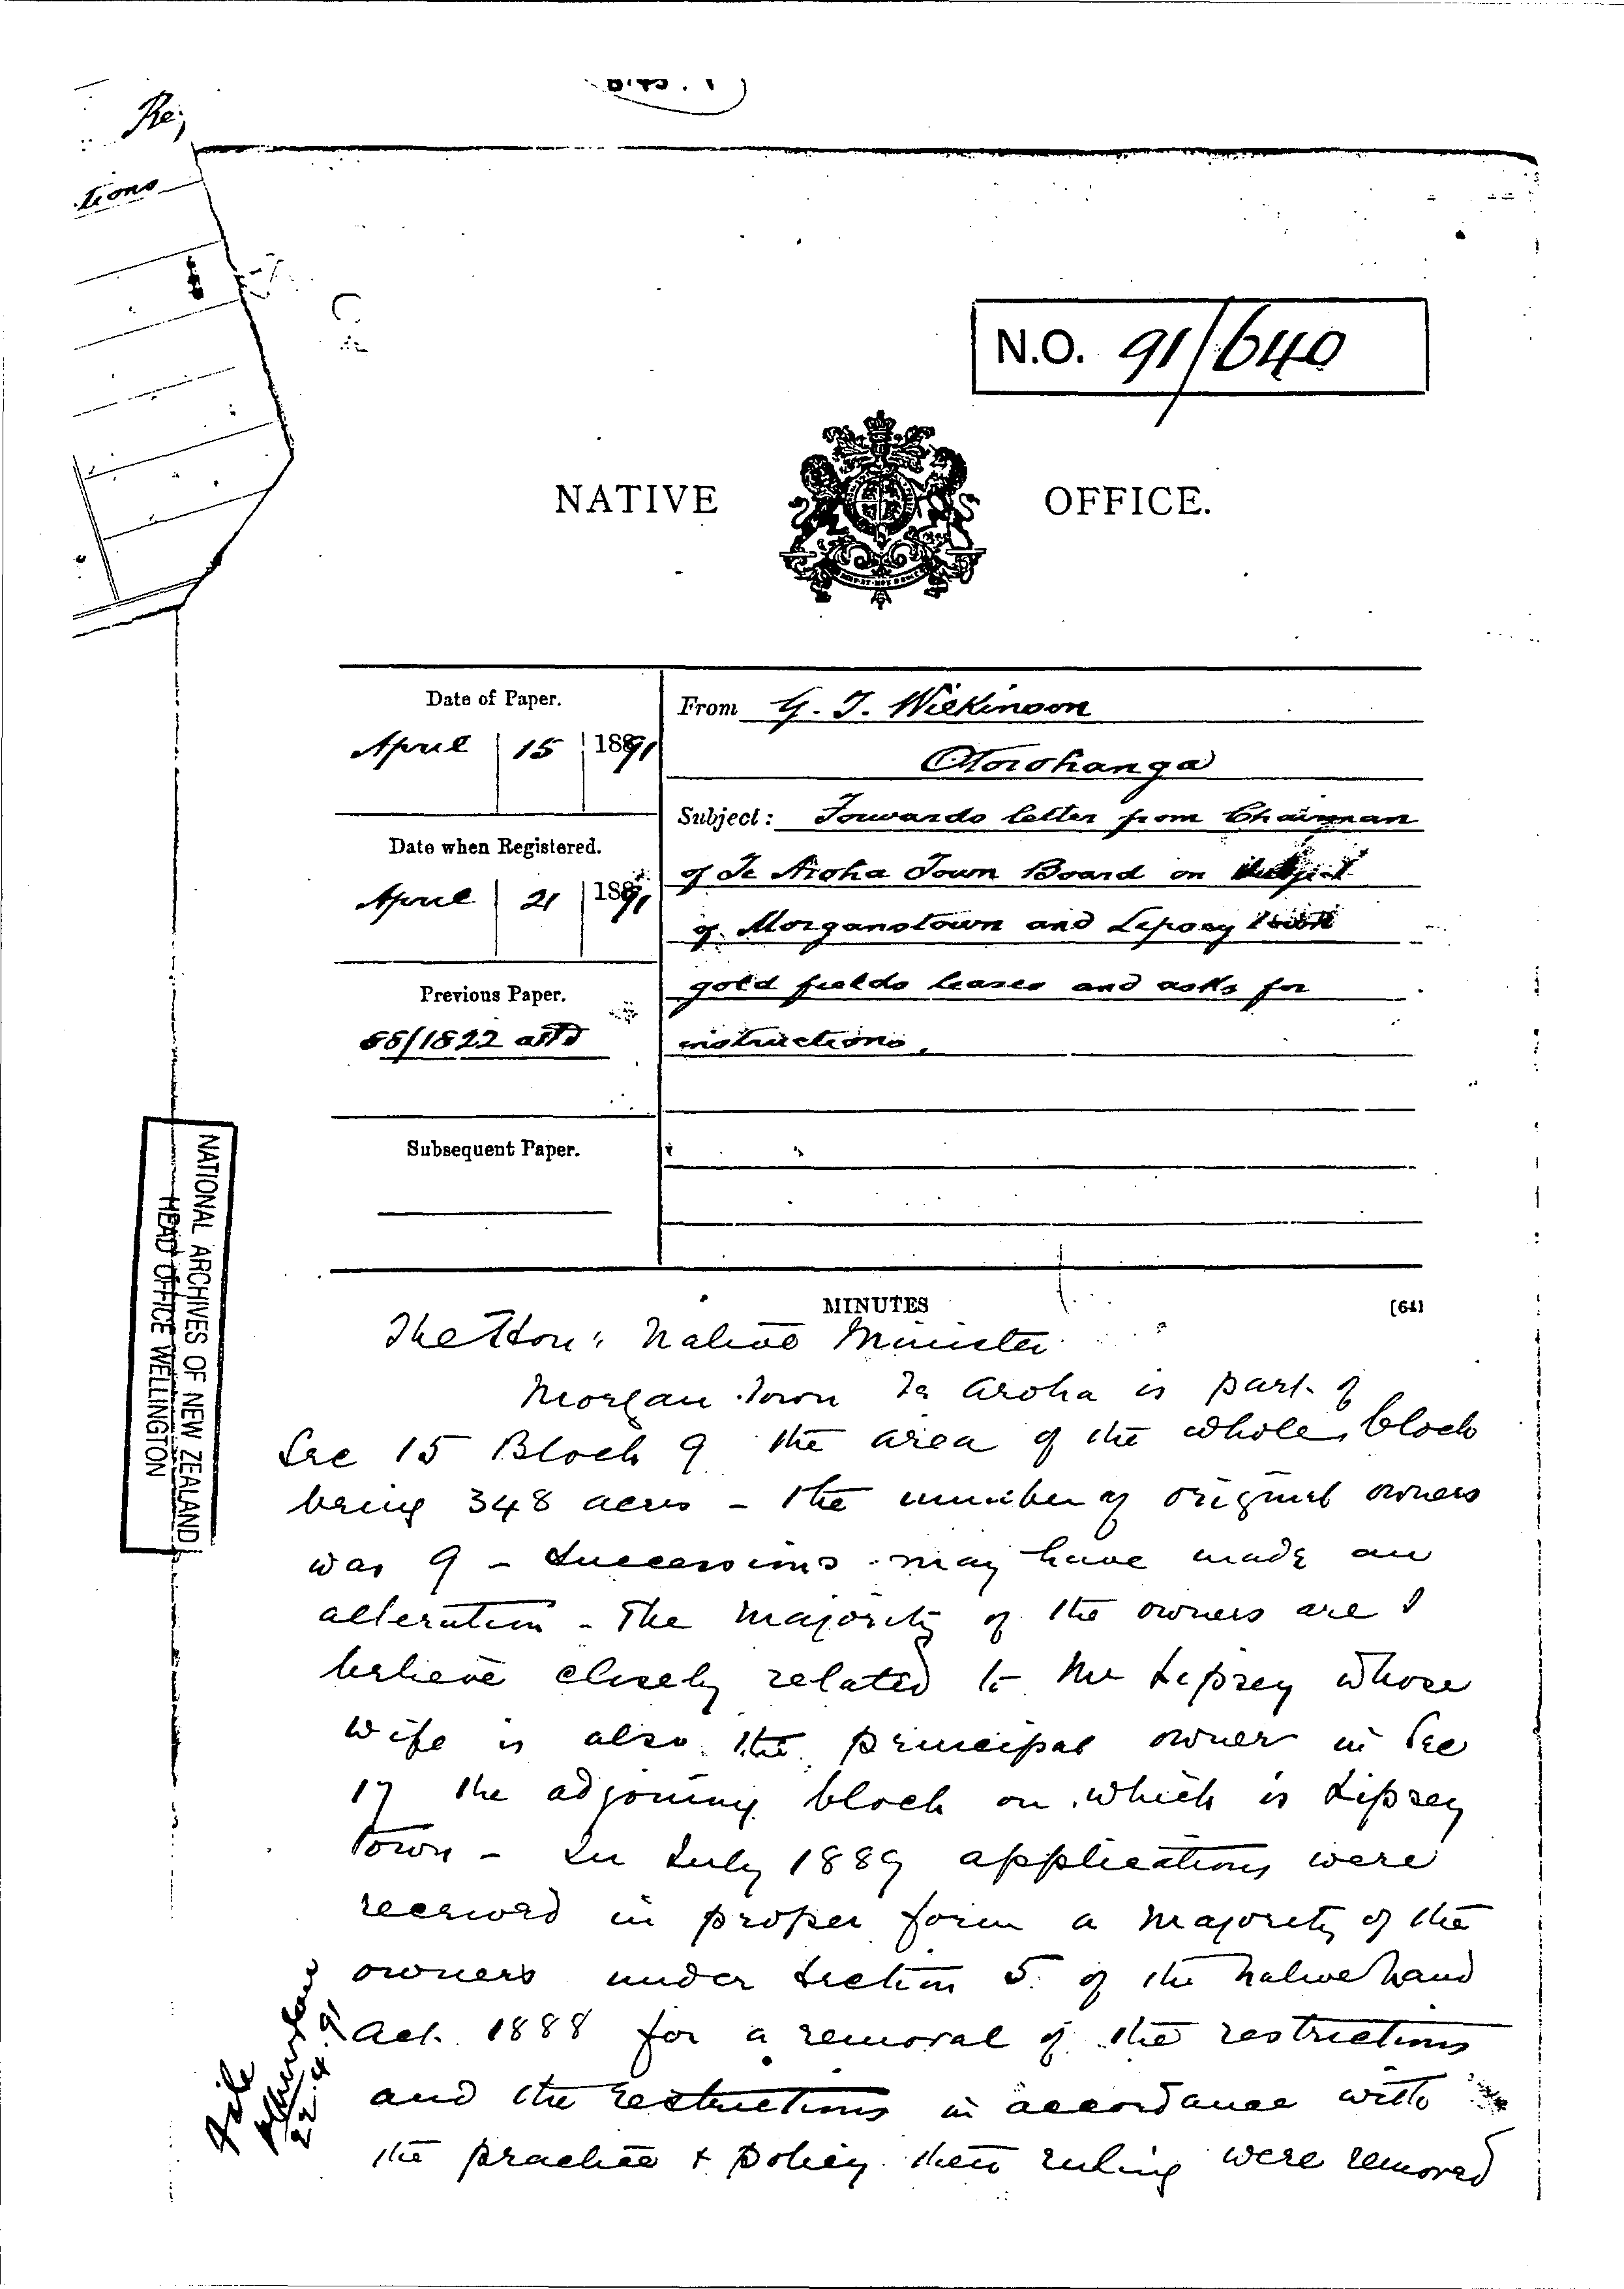 Re;
tions
N.O. 91/640
NATIVE OFFICE.
Date of Paper.
April 15 1891
Date when Registered.
April 21 1891
Previous Paper.
88/1822 attd
Subsequent Paper.
From G. T. Wilkinson
Otorohanga
Subject: Forwards letter from Chairman
of Te Aroha Town Board on subject
of Morganstown and Lipsey town
gold fields leases and asks for
instructions.
MINUTES [64]
The Hon: Native Minister
Morgan Town Te Aroha is part of
Sec 15 Block 9 the area of the whole block
being 348 acres - the number of original owners
was 9 - Successions may have made an
alteration - The majority of the owners are I
believe closely related to Mr Lipsey whose
wife is also the principal owner in Sec
17 the adjoining block on which is Lipsey
Town - In July 1889 applications were
received in proper form a majority of the
owners under Section 5 of the Native Land
Act 1888 for a removal of the restrictions
and the restrictions in accordance with
the practice & policy then ruling were removed
File
22.4.91
NATIONAL ARCHIVES OF NEW ZEALAND
HEAD OFFICE WELLINGTON